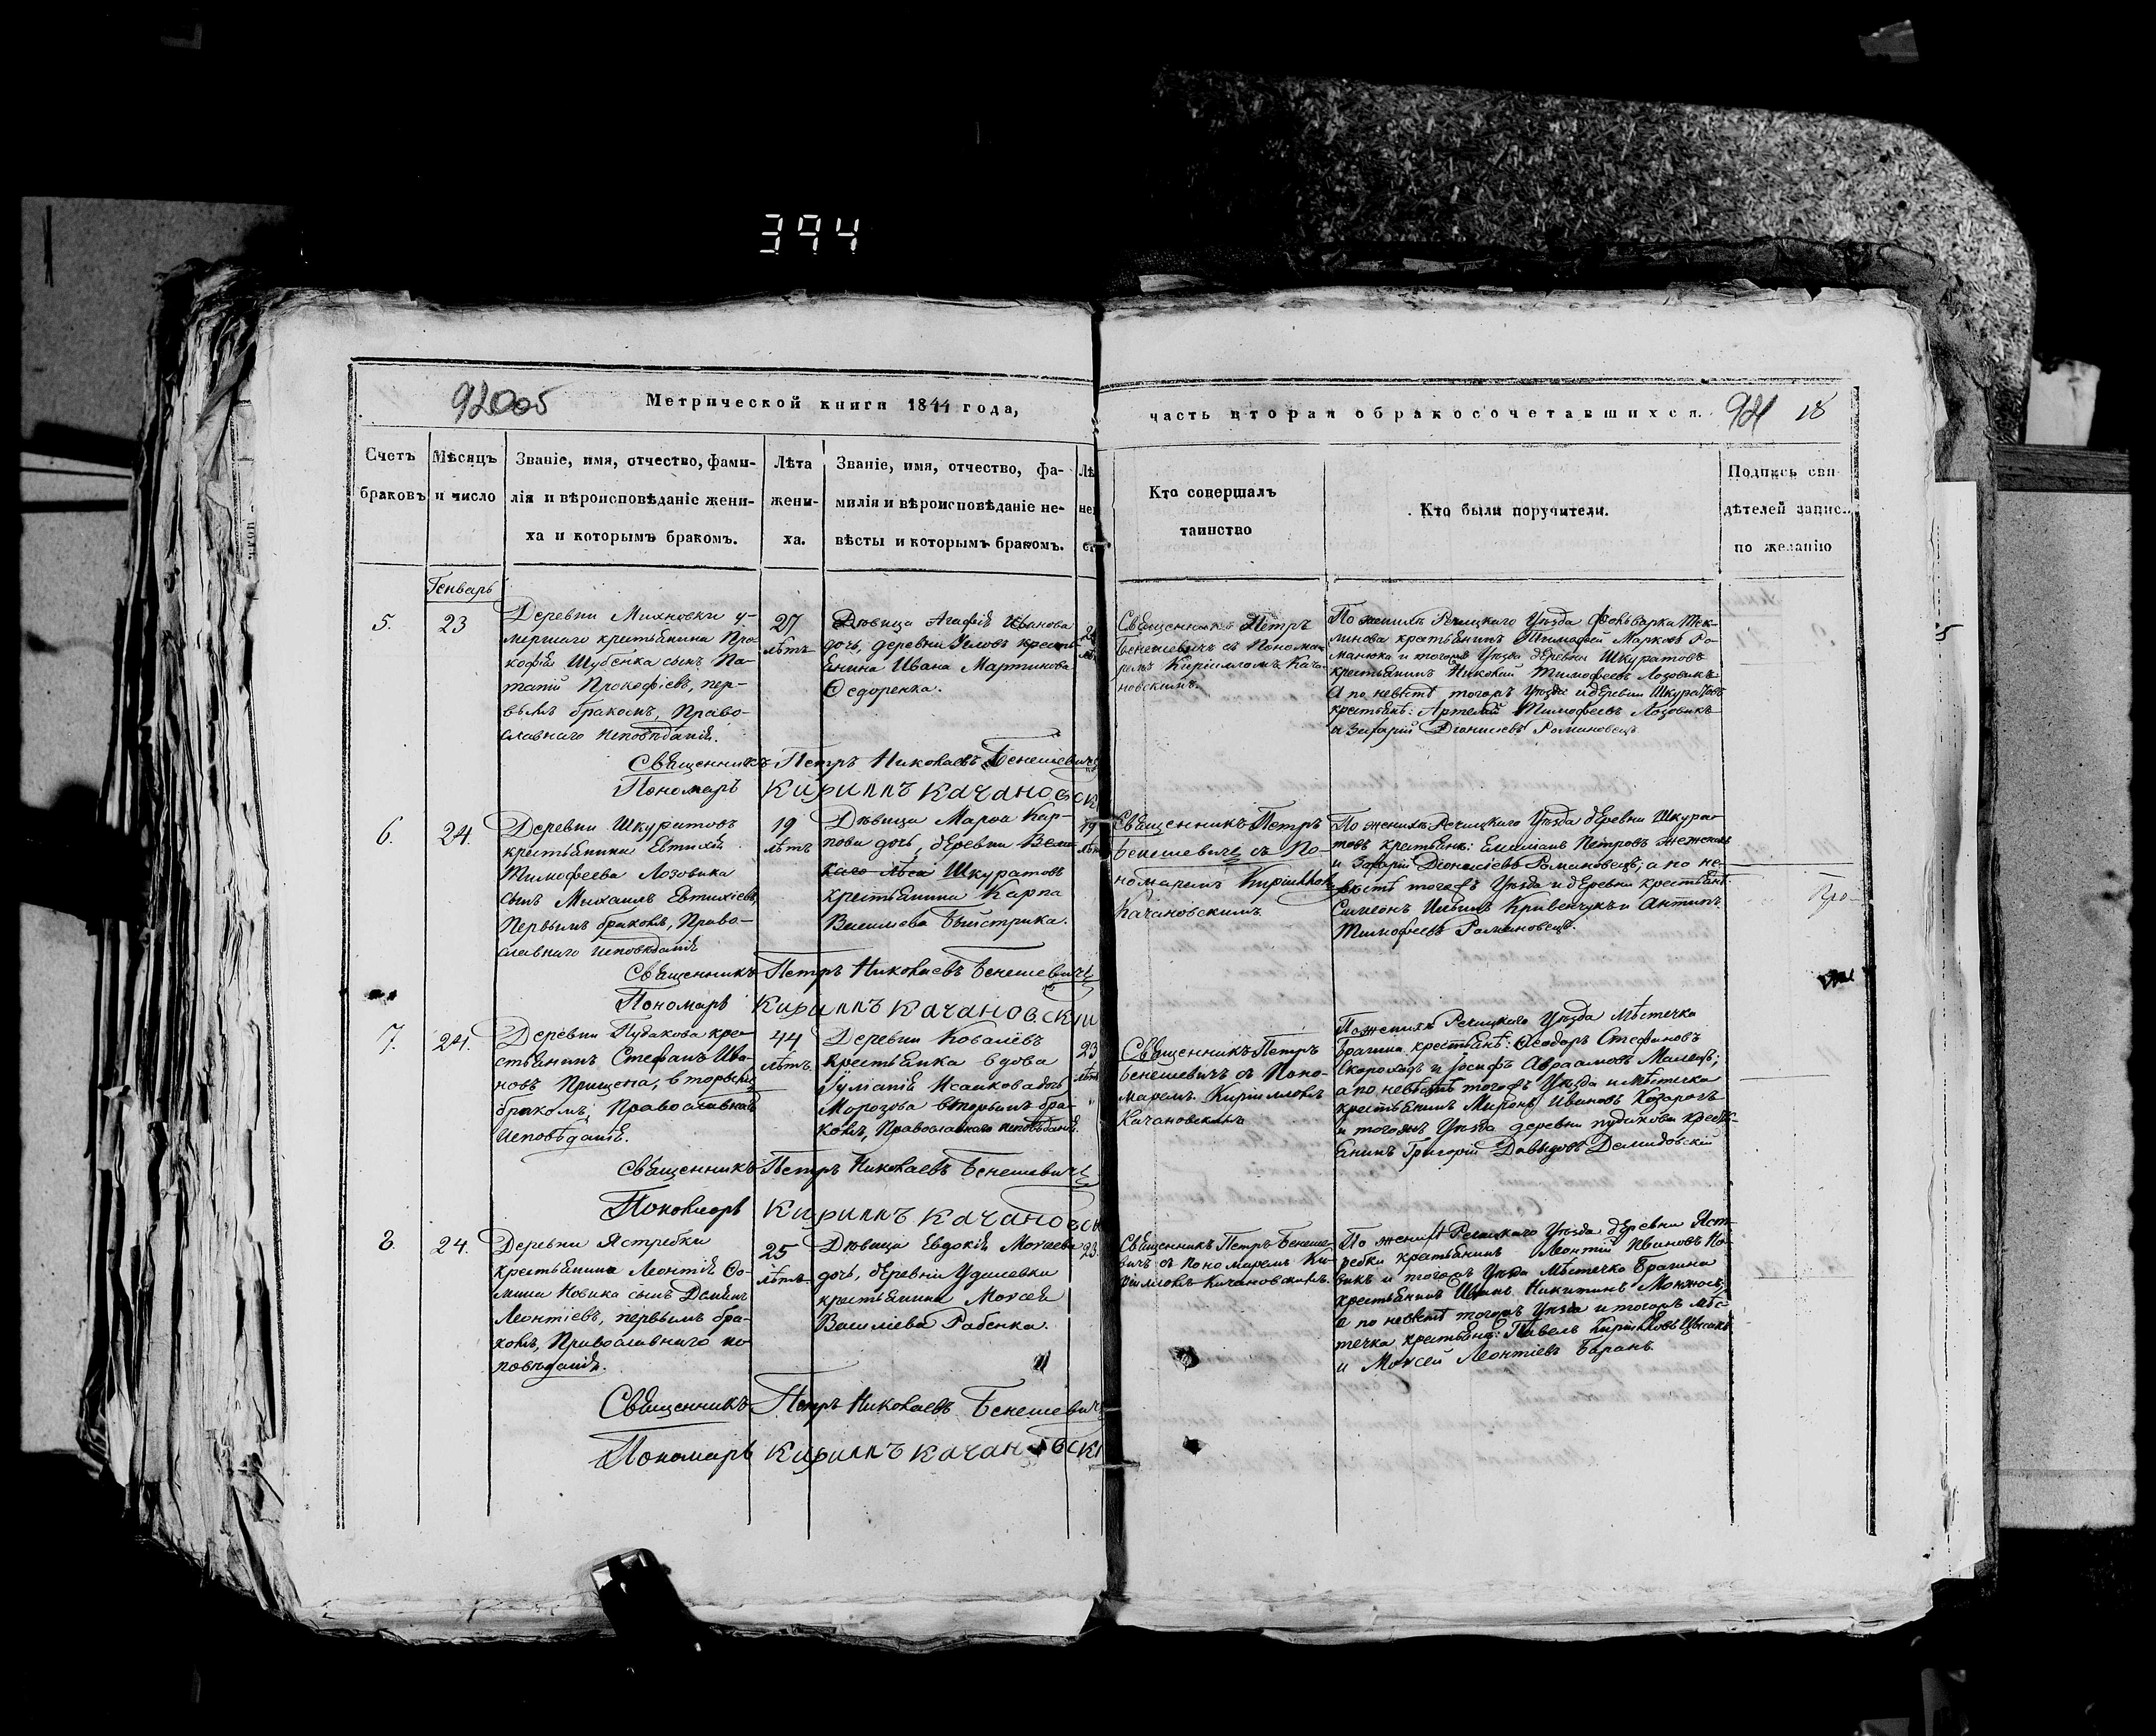 394
Метрической книги 1844 года,
часть вторая обракосочетавшихся.
18
Счетъ
браковъ
Мѣсяцъ
и число
Званіе, имя, отчество, фами-
лія и вѣроисповѣданіе жени-
ха и которымъ бракомъ.
Лѣта
жени-
ха.
Званіе, имя, отчество, фа-
милія и вѣроисповѣданіе не-
вѣсты и которымъ бракомъ.
Кто совершалъ
таинство
Кто были поручители.
Подпись сви
дѣтелей запис.
по желанію
Генварь
5.
23
Деревни Михновки у-
мершаго крестьянина Про
кофія Шубенка сынъ Па-
тапій Прокофіевъ, пер-
вымъ бракомъ, Право-
славнаго исповѣданія.
27
лѣтъ
Дѣвица Агафія Иванова
дочь, деревни крестья
янина Ивана Мартинова
Ѳедоренка.
Священникъ Петръ
Бенешевичъ съ Понома
ремъ Кирилломъ Кача
новскимъ.
По женихѣ Речицкаго Уѣзда Фольварка
крестьянинъ Тимофей Марковъ Ро
манюка и тогожъ Уѣзда деревни Шкуратовъ
крестьянинъ Николай Тимофеевъ Лозовикъ
А по невѣстѣ тогожъ Уѣзда и деревни Шкуратовъ
крестьяне: Артемій Тимофеевъ Лозовикъ
и Захарій Діонисіевъ Романовецъ
Священникъ Петръ Николаевъ Бенешевичъ
Пономарь Кириллъ Качановск
6.
24.
Деревни Шкуратовъ
крестьянина Евтихія
Тимофеева Лозовика
сынъ Михаилъ Евтихіевъ,
Первымъ бракомъ, Право-
славнаго исповѣданія
19
лѣтъ
Дѣвица Марѳа Кар-
пова дочь, деревни Вели
каго лѣса Шкуратовъ
крестьянина Карпа
Василіева Быстрика.
19
Священникъ Петръ
Бенешевичъ съ По-
номаремъ Кирилломъ
Качановскимъ
По женихѣ Речицкаго Уѣзда деревни Шкура
товъ крестьяне: Емиліанъ Петровъ
и Захарій Діонисіевъ Романовецъ; а по не-
вѣстѣ тогожъ Уѣзда и деревни крестьяне
Симеонъ Ильинъ Кривенчукъ и Антипъ
Тимофеевъ Романовецъ.
Про
Священникъ Петръ Николаевъ Бенешевичъ
Пономарь Кириллъ Качановскій
7.
24.
Деревни Пудакова кре-
стьянинъ Стефанъ Ива-
новъ Прищепа, вторымъ
бракомъ, Православнаго
Исповѣданія.
44
лѣтъ.
Деревни Ковалёвъ
крестьянка вдова
Іуліанія Исаакова дочь
Морозова вторымъ бра-
комъ, Православнаго исповѣданія.
23
лѣтъ
Священникъ Петръ
Бенешевичъ съ Поно-
маремъ Кирилломъ
Качановскимъ
По женихѣ Речицкаго Уѣзда Мѣстечка
Брагина крестьяне: Ѳеодоръ Стефановъ
Скороходъ и Іосифъ Авраамовъ Малецъ;
а по невѣстѣ тогожъ Уѣзда и мѣстечка
крестьянинъ Миронъ Ивановъ Козарозъ
и тогожъ Уѣзда деревни пудакова кресть-
янинъ Григорій Давыдовъ Демидовскій
Священникъ Петръ Николаевъ Бенешевичъ
Пономарь Кириллъ Качановск
8.
24.
Деревни Ястребки
крестьянина Леонтія Ѳо-
мина Новика сынъ Даміанъ
Леонтіевъ, первымъ бра-
комъ, Православнаго ис
повѣданія.
25
лѣтъ
Дѣвица Евдокія Моѵсеева
дочь, деревни Удалевки
крестьянина Моѵсея
Василіева Рабенка.
23.
Священникъ Петръ Бенеше
вичъ съ пономаремъ Ки-
рилломъ Качановскимъ.
По женихѣ Речицкаго Уѣзда деревни Яст-
ребки крестьянинъ Леонтій Ивановъ Но-
викъ и тогожъ Уѣзда Мѣстечка Брагина
крестьянинъ Иванъ Никитинъ
а по невѣстѣ тогожъ Уѣзда и тогожъ мѣс-
течка крестьяне: Павелъ Кирилловъ
и Моѵсей Леонтіевъ Баранъ.
Священникъ Петръ Николаевъ Бенешевичъ
Пономарь Кириллъ Качановскі